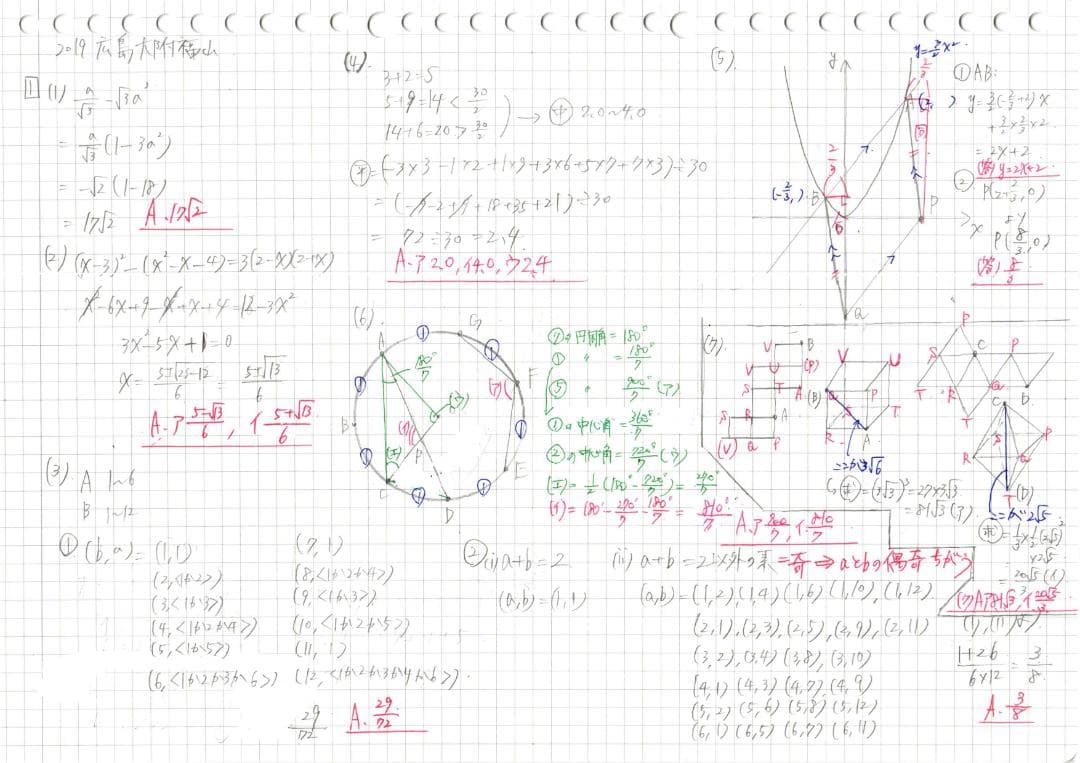 2019 広島大附福山
1 (1) a/√3 - √3a³
= a/√3 (1-3a²)
= -√2 (1-18)
= 17√2 A. 17√2
(2) (x-3)² - (x²-x-4) = 3(2-x)(2+x)
x²-6x+9-x²+x+4 = 12-3x²
3x²-5x+1=0
x = (5±√25-12)/6 = (5±√13)/6
A. ア (5-√13)/6 , イ (5+√13)/6
(3) A 1~6
B 1~12
① (b,a) = (1,1) (7,1)
(2,<1か2>) (8,<1か2か4>)
(3,<1か3>) (9,<1か3>)
(4,<1か2か4>) (10,<1か2か5>)
(5,<1か5>) (11,1)
(6,<1か2か3か6>) (12,<1か2か3か4か6>)
29/72 A. 29/72
② (i) a+b=2
(a,b)=(1,1)
(ii) a+b=2以外の素=奇⇒aとbの偶奇ちがう
(a,b)=(1,2),(1,4)(1,6)(1,10),(1,12)
(2,1),(2,3),(2,5),(2,9),(2,11)
(3,2),(3,4)(3,8),(3,10)
(4,1)(4,3)(4,7),(4,9)
(5,2)(5,6)(5,8)(5,12)
(6,1)(6,5)(6,7)(6,11)
(i),(ii)より
(1+26)/(6×12) = 3/8
A. 3/8
(4).
3+2=5
5+9=14 < 30/2
14+6=20 > 30/2
→ 中 2.0~4.0
平 = (-3×3-1×2+1×9+3×6+5×7+7×3)÷30
= (-9-2+9+18+35+21)÷30
= 72÷30=2.4
A. ア 2.0, イ 4.0, ウ 2.4
(5).
y
y=3/2x²
2/3
A
B
(-2/3, )
P
Q
x
① AB:
y=3/2(-2/3+2)x
+3/2×2/3×2
=2x+2
(答) y=2x+2
② P(2+2/3,0)
より
P(8/3,0)
(答) 8/3
(6).
A
B
C
D
E
F
G
P
180°/7
(ア)
(イ)
(ウ)
(エ)
⑦の円周角=180°
① 〃 =180°/7
⑤ 〃 =900°/7 (ア)
①の中心角=360°/7
②の中心角=720°/7 (ウ)
(エ)=1/2(180°-720°/7)=270°/7
(イ)=180°-270°/7-180°/7=810°/7
A. ア 900/7, イ 810/7
(7).
V B
V U (P)
S T A (B)
S R A
(V) Q P
V U
Q P T
R A
ここが3√6
(求)=(3√3)³=27×3√3
=81√3 (ア)
P
S C P
T R Q D
T
C
S P
R Q
T (D)
ここが2√5
(求)=1/3×1/2(2√5)²
×2√5
=20√5/3 (イ)
(7) A. ア 81√3, イ 20√5/3